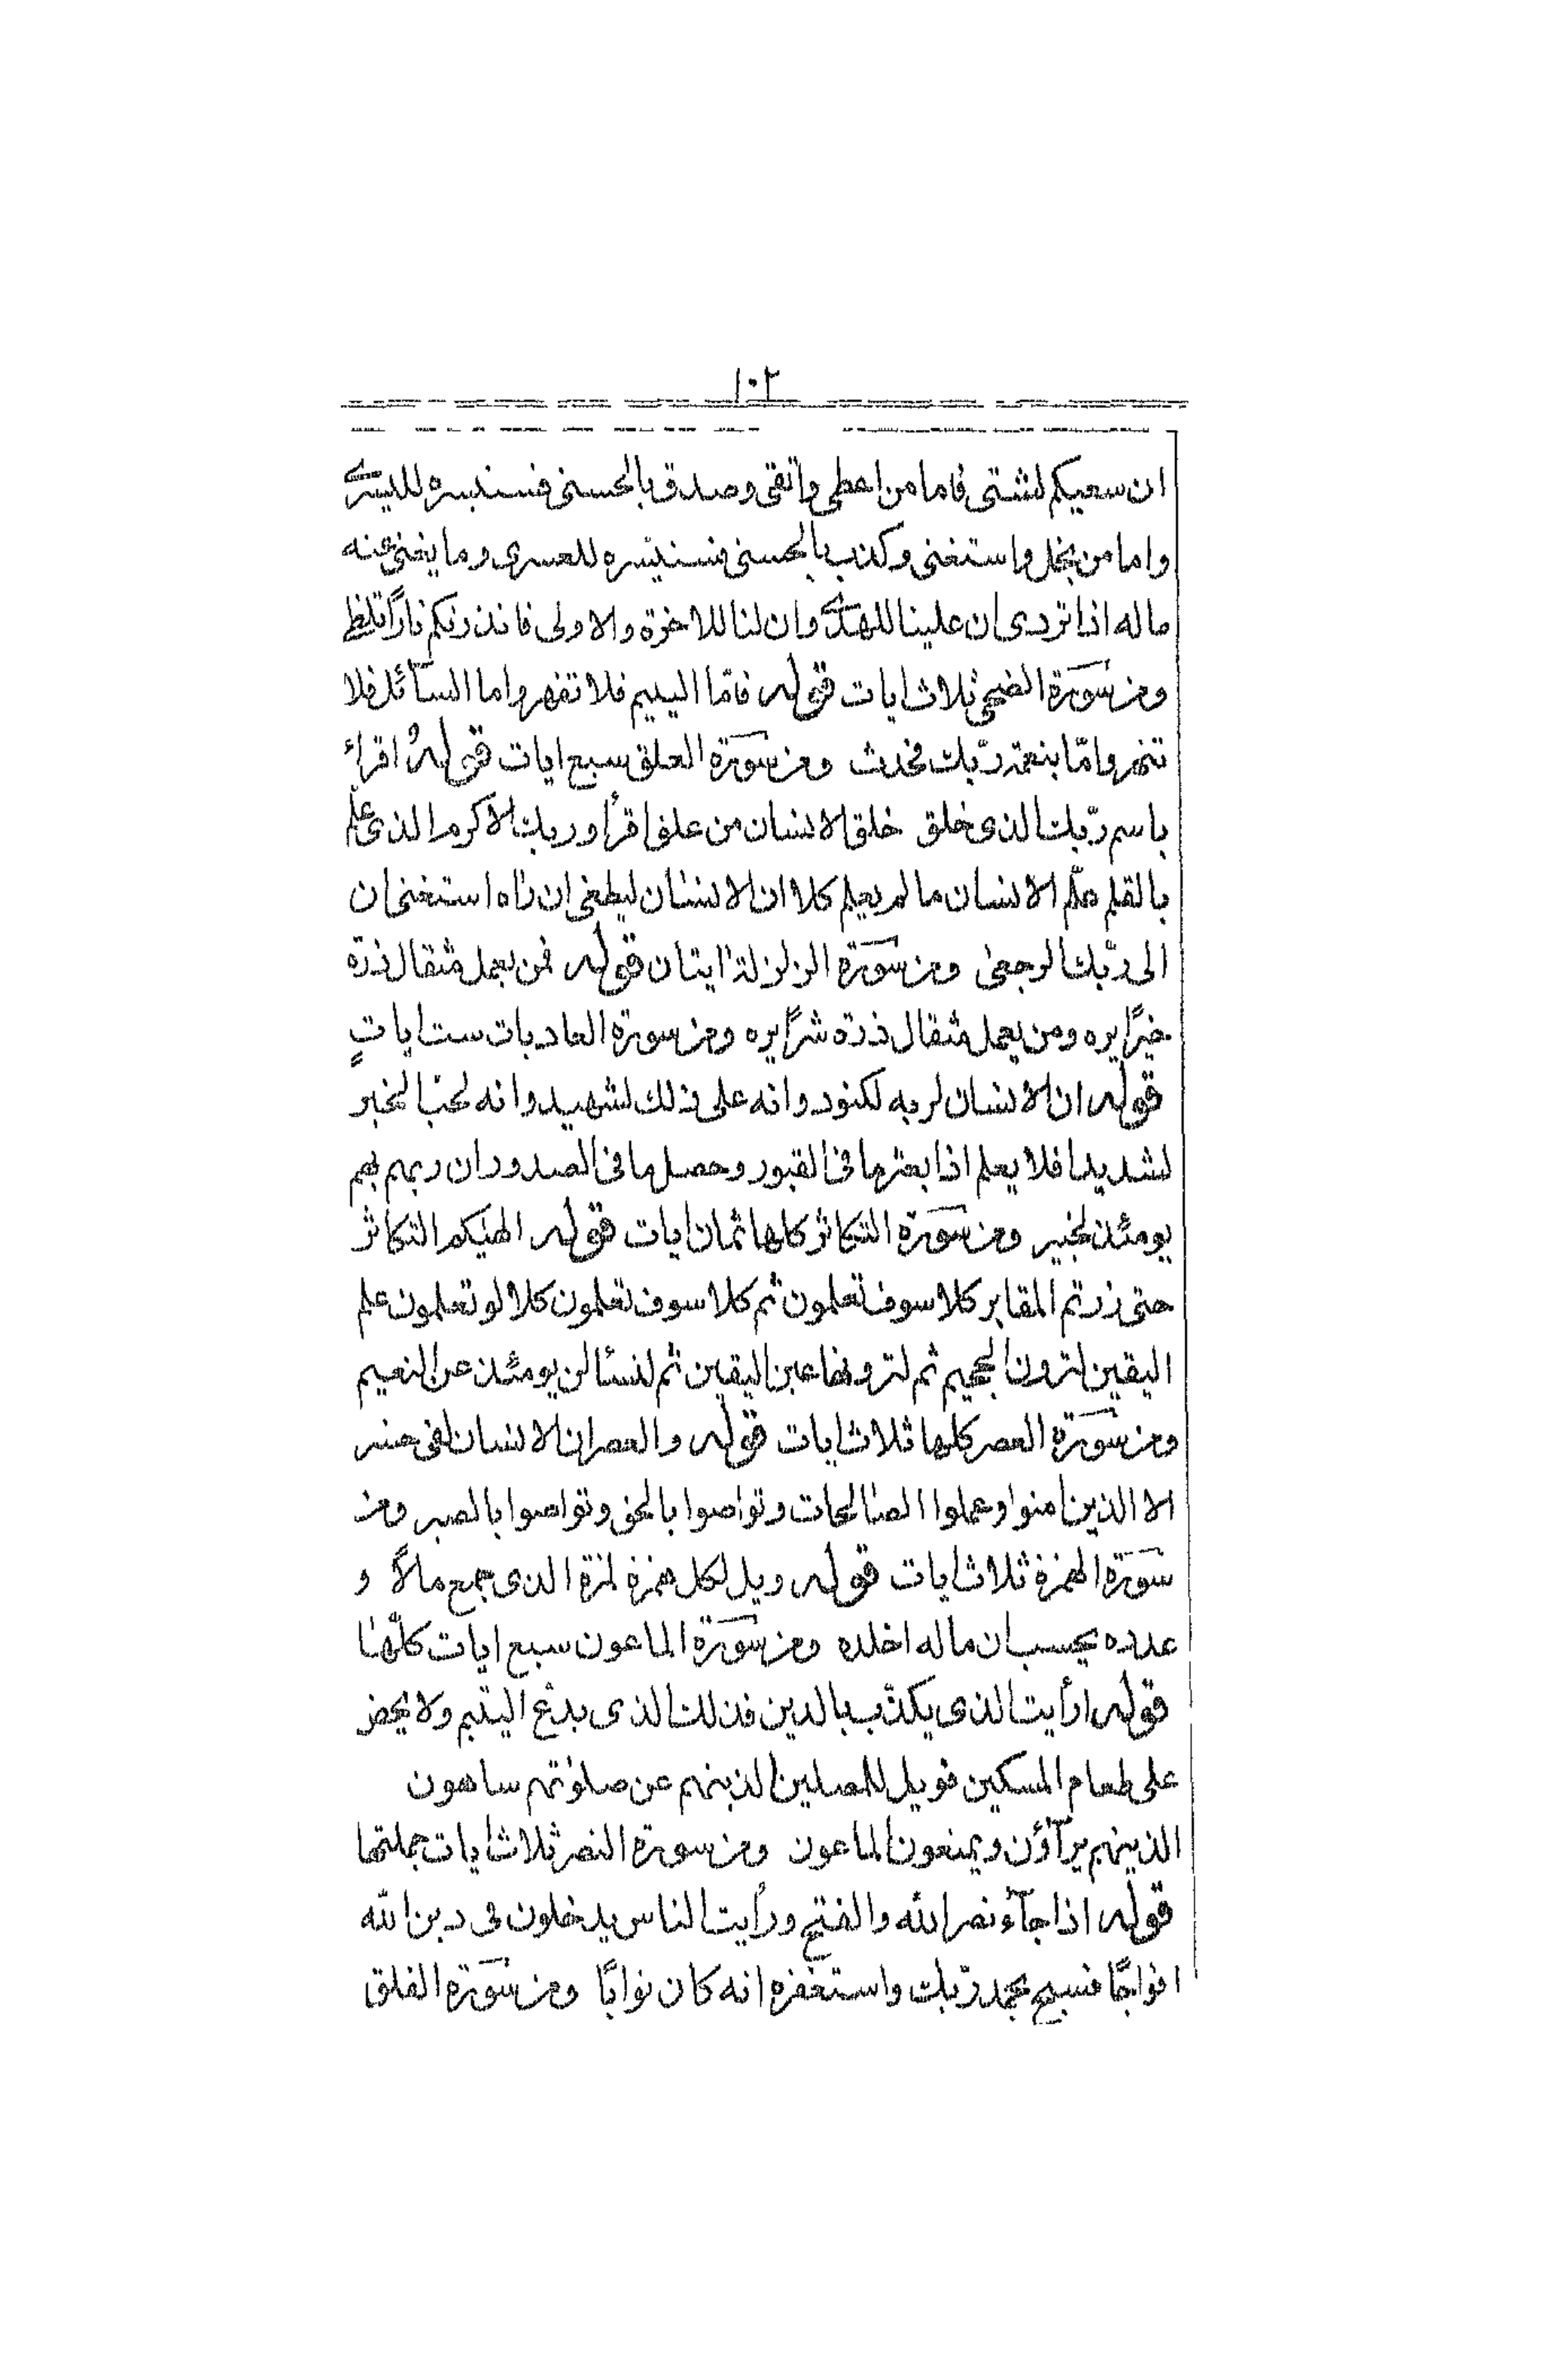 ١٠٢
ان سعيكم لشتى فاما من اعطى واتقى وصدق بالحسنى فسنيسره لليسرى
واما من بخل واستغنى وكذب بالحسنى فسنيسّره للعسرى وما يغنى عنه
ماله اذا تردى ان علينا للهدى وان لنا للاخرة والاولى فانذرتكم نارًا تلظى
ومن سورة الضحى ثلاث ايات قوله فامّا اليتيم فلا تقهر واما السآئل فلا
تنهر وامّا بنعمة ربّك فحدث ومن سورة العلق سبع ايات قولهُ اقراء
باسم ربّك الذى خلق خلق الانسان من علق اقرأ وربك الاكرم الذى علم
بالقلم علّم الانسان ما لم يعلم كلا ان الانسان ليطغى ان راه استغنى ان
الى ربّك الرجعى ومن سورة الزلزلة ايتان قوله فمن يعمل مثقال ذرّة
خيرًا يره ومن يعمل مثقال ذرة شرًا يره ومن سورة العاديات ست اياتٍ
قوله ان الانسان لربه لكنود وانه على ذلك لشهيد وانه لحبّ الخير
لشديد افلا يعلم اذا بعثر ما فى القبور وحصل ما فى الصدور ان ربهم بهم
يومئذ لخبير ومن سورة التكاثر كلها ثمان ايات قوله الهيكم التكاثر
حتى زرتم المقابر كلا سوف تعلمون ثم كلا سوف تعلمون كلا لو تعلمون علم
اليقين لترون الجحيم ثم لترونها عين اليقين ثم لتسئالن يومئذ عن النعيم
ومن سورة العصر كلها ثلاث ايات قوله والعصر ان الانسان لفى خسر
الا الذين امنوا وعملوا الصالحات وتواصوا بالحق وتواصوا بالصبر ومن
سورة الهمزة ثلاث ايات قوله ويل لكل همزة لمزة الذى جمع مالاً و
عدده يحسب ان ماله اخلده ومن سورة الماعون سبع ايات كلّها
قوله ارأيت الذى يكذّب بالدين فذلك الذى يدعّ اليتيم ولا يحض
على طعام المسكين فويل للمصلين الذينهم عن صلوتهم ساهون
الذينهم يرآؤن ويمنعون الماعون ومن سورة النصر ثلاث ايات جملتها
قوله اذا جآء نصر الله والفتح ورأيت الناس يدخلون فى دين الله
افواجًا فسبح بحمد ربّك واستغفره انه كان توابًا ومن سورة الفلق